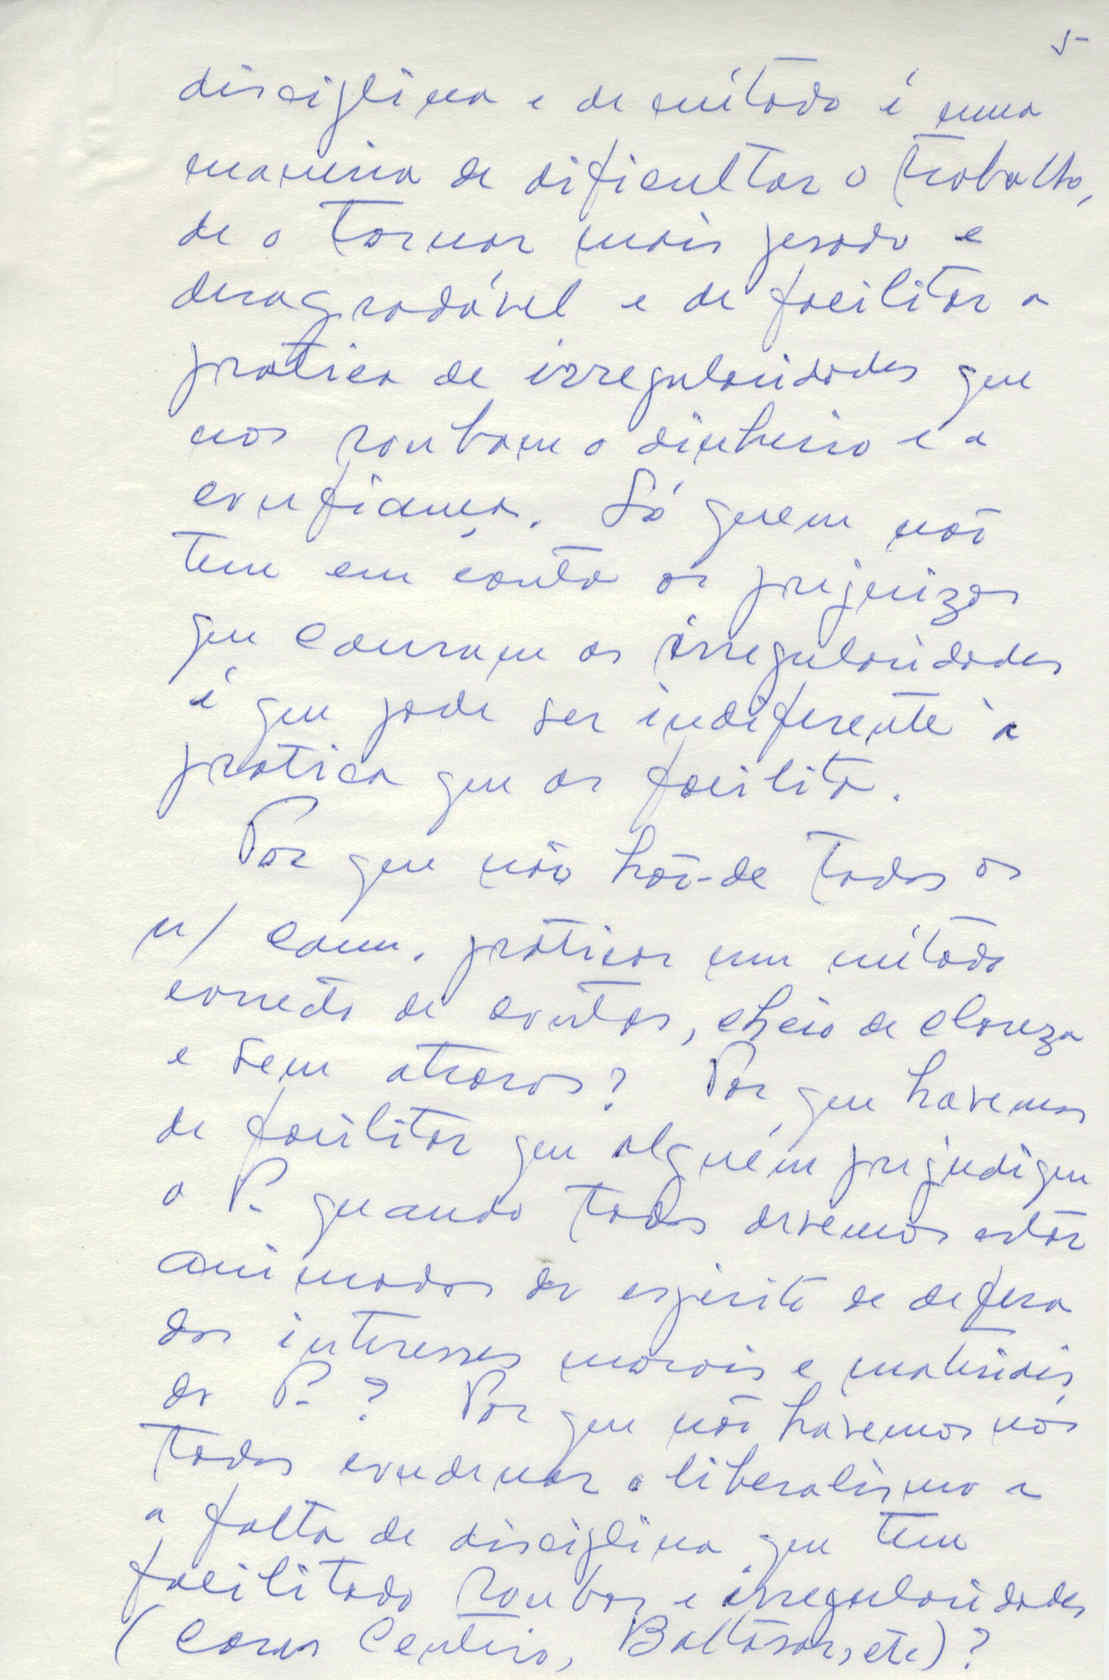 5
disciplina e de método é uma
maneira de dificultar o trabalho,
de o tornar mais pesado e
desagradável e de facilitar a
pratica de irregularidades que
nos roubam o dinheiro e a
confiança. Só quem não
tem em conta os prejuizos
que causam as irregularidades
é que pode ser indiferente à
pratica que as facilita.
Por que não hão-de todos os
n/ cam. praticar um método
correcto de contas, cheio de clareza
e sem atrasos? Por que havemos
de facilitar que alguém prejudique
o P. quando todos devemos estar
animados do espirito de defesa
dos interesses morais e materiais
do P.? Por que não havemos nós
todos condenar o liberalismo e
a falta de disciplina que tem
facilitado roubos e irregularidades
(Casos Centeio, Baltasar, etc)?